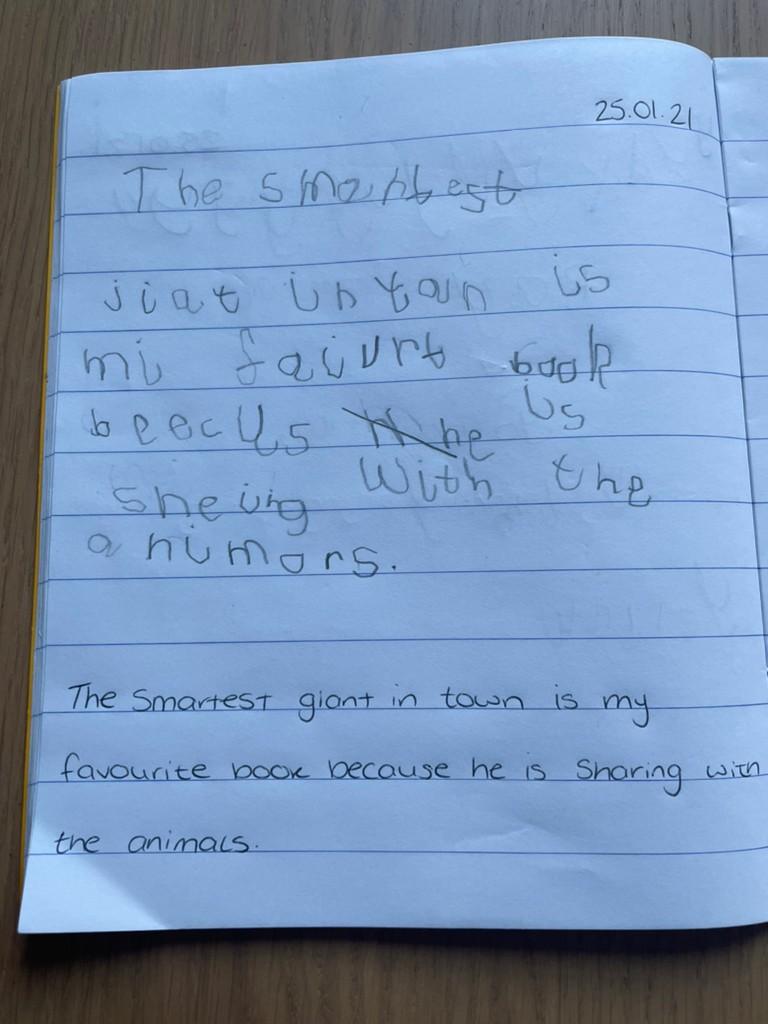 25.01.21
The smartest
jiat in town is
mi faiurt book
beecus he is
sheing with the
anumors.
The Smartest giant in town is my
favourite book because he is Sharing with
the animals.